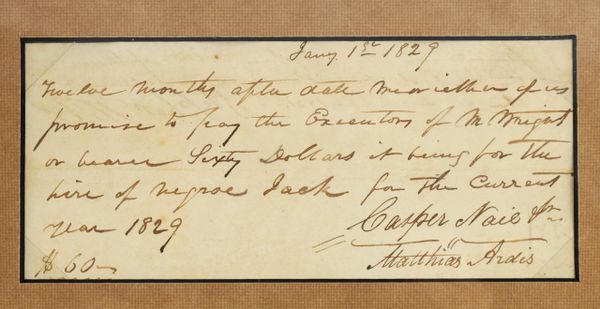 Jany 1st 1829
Twelve months after date we or either of us
promise to pay the Executors of M. Wright
or bearer Sixty Dollars it being for the
hire of negroe Jack for the Current
year 1829
Casper Nail Jr
$60—
Matthias Ardis